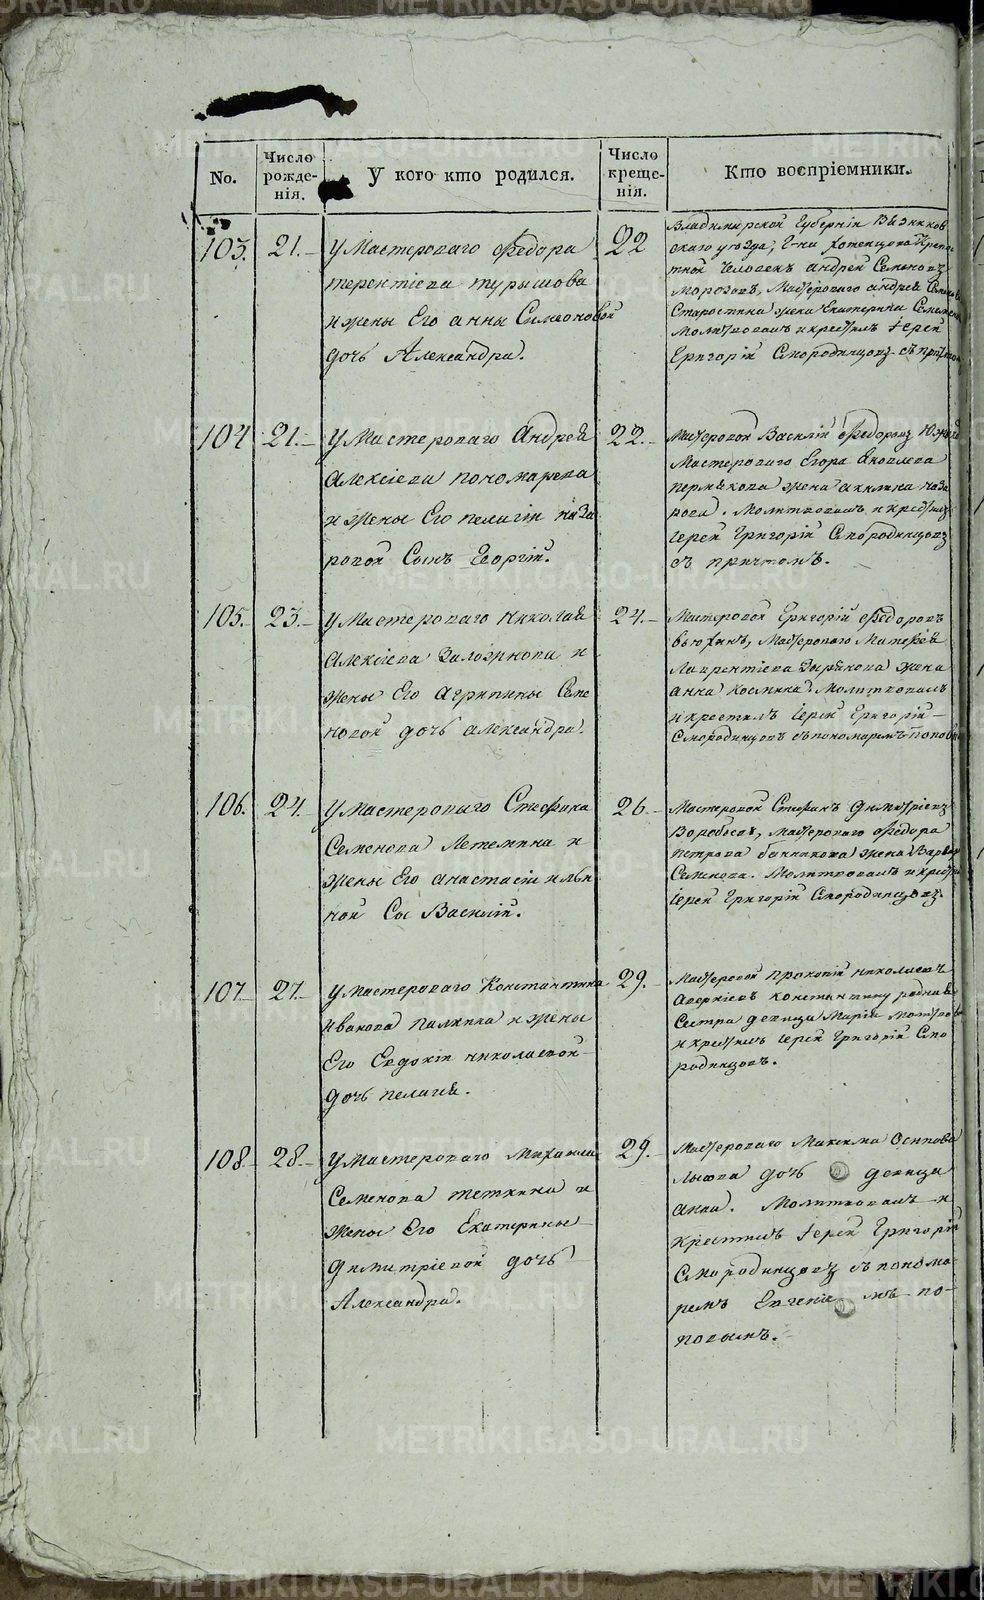 No.
Число рожде-нія.
У кого кто родился.
Число креще-нія.
Кто воспріемники.
103.
21.
У Мастероваго Федора
терентіева турышова
и жены Его анны Симеоновой
дочь Александра.
22
Владимирской Губерніи Вязников
скаго уезда,
тной человекъ андрей Семеновъ
Морозовъ, Мастероваго андрея
Старостина жена Екатерина
Молитвовалъ и крестилъ Іерей
Григорій Смородинцовъ съ
104
21.
У Мастероваго Андрея
Алексіева пономарева
и жены Его пелагіи наза
ровой Сынъ Георгій.
22.
Мастеровой Василій Федоровъ
Мастероваго Егора Яковлева
пермякова жена акилина наза
рова. Молитвовалъ и крестилъ
Іерей Григорій Смородинцовъ
съ причтомъ.
105.
23.
У Мастероваго Николая
Алексіева Заложнова и
жены Его Агрипины Семе
новой дочь александра.
24.
Мастеровой Григорій Федоровъ
Вьюхинъ, Мастероваго Матфея
Лаврентіева Зырянова жена
анна Космина. Молитвовалъ
и крестилъ Іерей Григорій
Смородинцовъ съ пономаремъ
106.
24.
У Мастероваго Стефана
Семенова Летемина и
жены Его анастасіи ильи
ной Сы Василій.
26.
Мастеровой Стефанъ Димитріевъ
Воробьевъ, мастероваго Федора
петрова банникова жена
Семенова. Молитвовалъ и
Іерей Григорій Смородинцовъ.
107.
27.
У Мастероваго Константина
Иванова палкина и жены
Его Евдокіи николаевой
дочь пелагія.
29.
Мастеровой прокопій николаевъ
Аверкіевъ константину родная
Сестра девица Марія
и крестилъ Іерей Григорій Смо
родинцовъ.
108.
28.
У Мастероваго Михаила
Семенова теткина и
жены Его Екатерины
Димитріевой дочь
Александра.
29.
Мастероваго Максима Осипова
дочь девица
анна. Молитвовалъ и
крестилъ Іерей Григорій
Смородинцовъ съ понома-
ремъ Евгеніемъ по-
повымъ.
METRIKI.GASO-URAL.RU